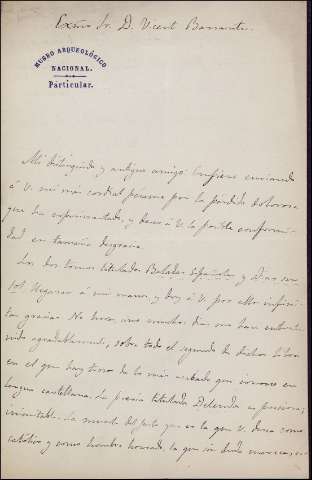 Exmo Sr. D. Vicente Barrantes.
MUSEO ARQUEOLÓGICO
NACIONAL.
Particular.
Mi distinguido y antiguo amigo: Confieso enviando
á V. mi más cordial pésame por la pérdida dolorosa
que ha experimentado, y deseo á V. la posible conformi-
dad en tamaña desgracia.
Los dos tomos titulados Baladas Españolas y Dias sin
sol llegaron á mi mano, y doy á V. por ellos infini-
tas gracias. No hace aun muchos dias me han entrete-
nido agradablemente, sobre todo el segundo de dichos libros
en el que hay trozos de lo más acabado que conozco en
lengua castellana. La poesia titulada es preciosa,
inimitable. La muerte del justo que es la que V. desea como
católico y como hombre honrado, la que sin duda merece,